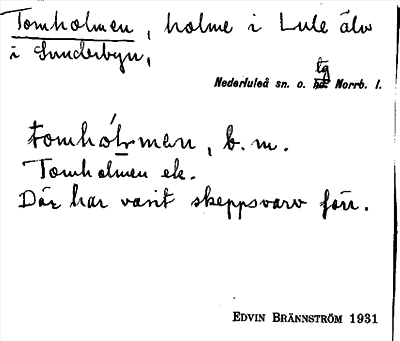 Tomholmen, holme i Lule älv
i Sunderbyn,
tg
Nederluleå sn. o. hd. Norrb. l.
tomhólmen, b. m.
Tomholmen ek.
Där har varit skeppsvarv förr.
EDVIN BRÄNNSTRÖM 1931